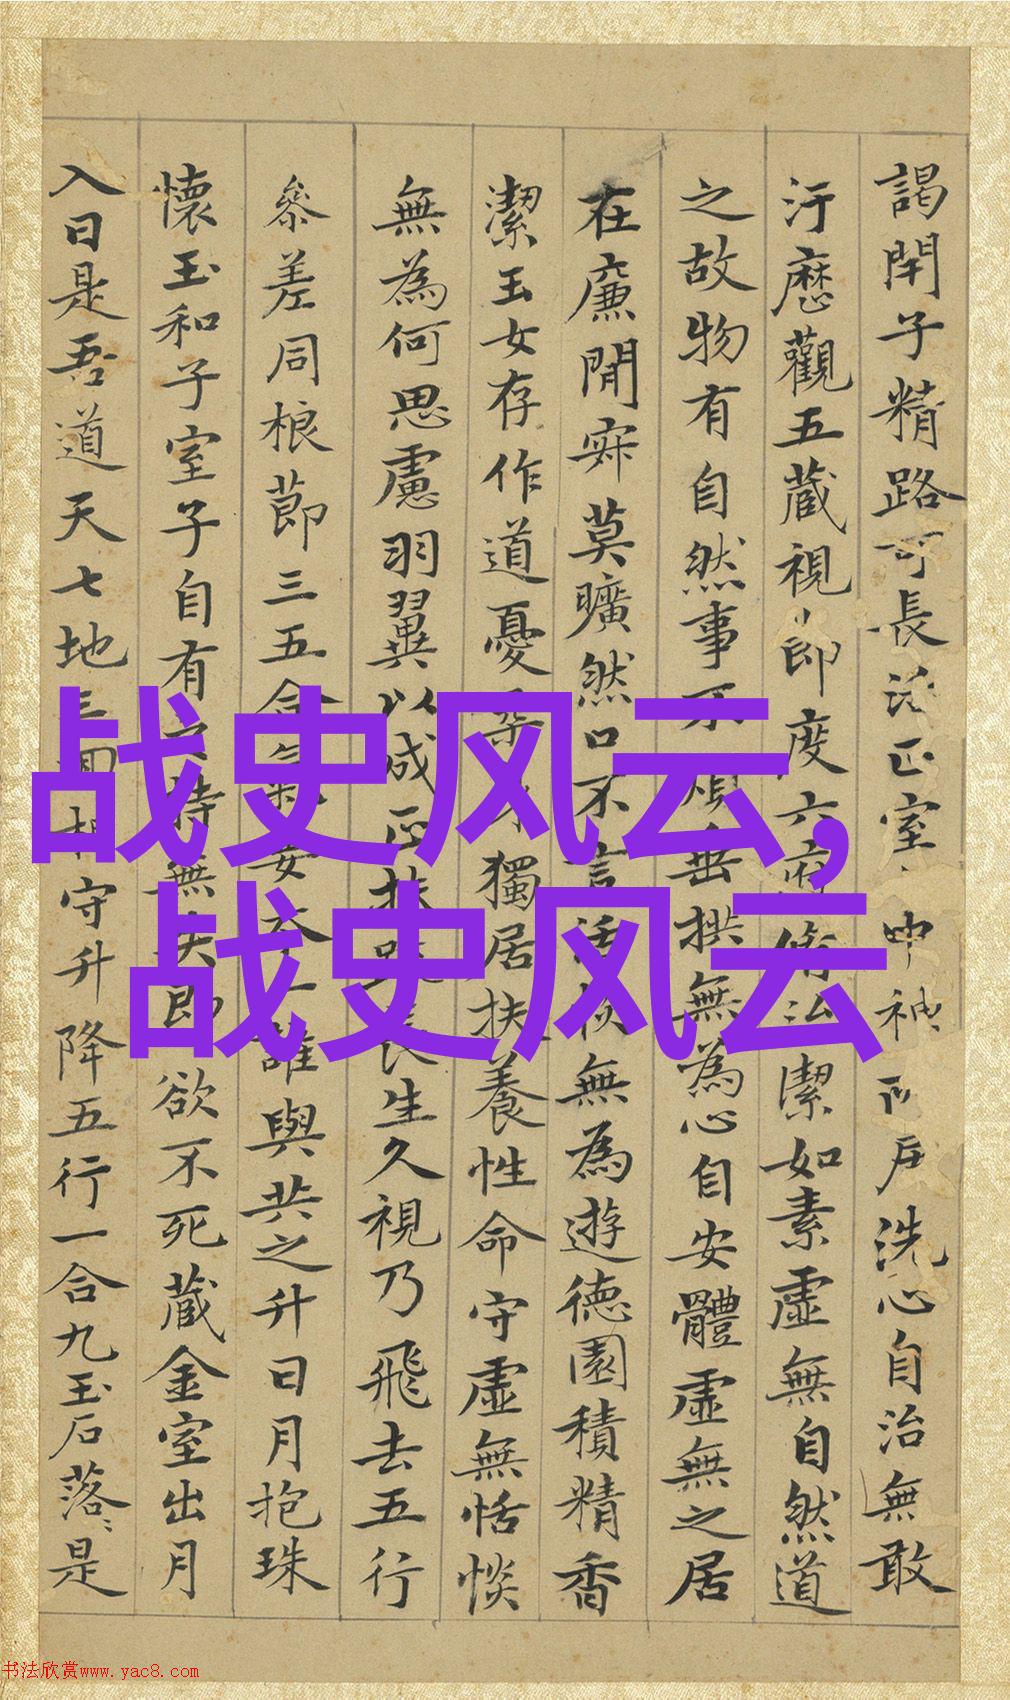 謁閇子精路可長活正室中神所居洗心自治無敢
汙歷觀五藏視節度六府脩治潔如素虛無自然道
之故物有自然事不煩垂拱無為心自安體虛無之居
在廉閒寂莫曠然口不言恬惔無為遊德園積精香
潔玉女存作道憂柔身獨居扶養性命守虛無恬惔
無為何思慮羽翼以成正扶疏長生久視乃飛去五行
參差同根節三五合氣要本一誰與共之升日月抱珠
懷玉和子室子自有之持無失即欲不死藏金室出月
入日是吾道天七地三回相守升降五行一合九玉石落〻是
战史风云,
战史风云
书法欣赏www.yac8.com